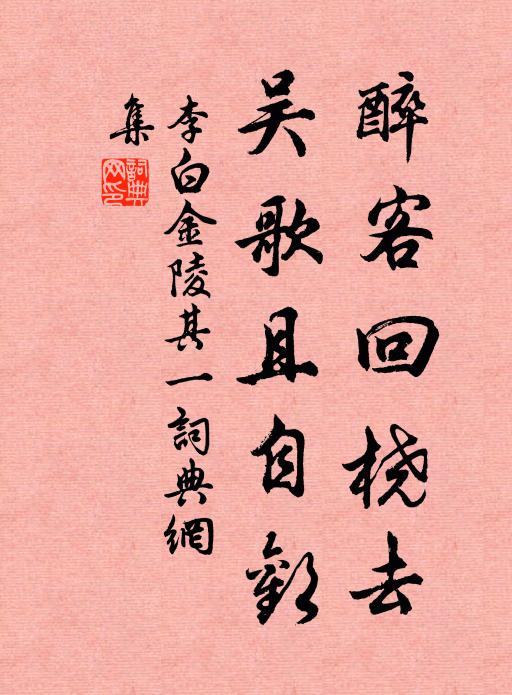 醉客回桡去
吴歌且自歡
李白金陵其一詞典網
集
詞典網印